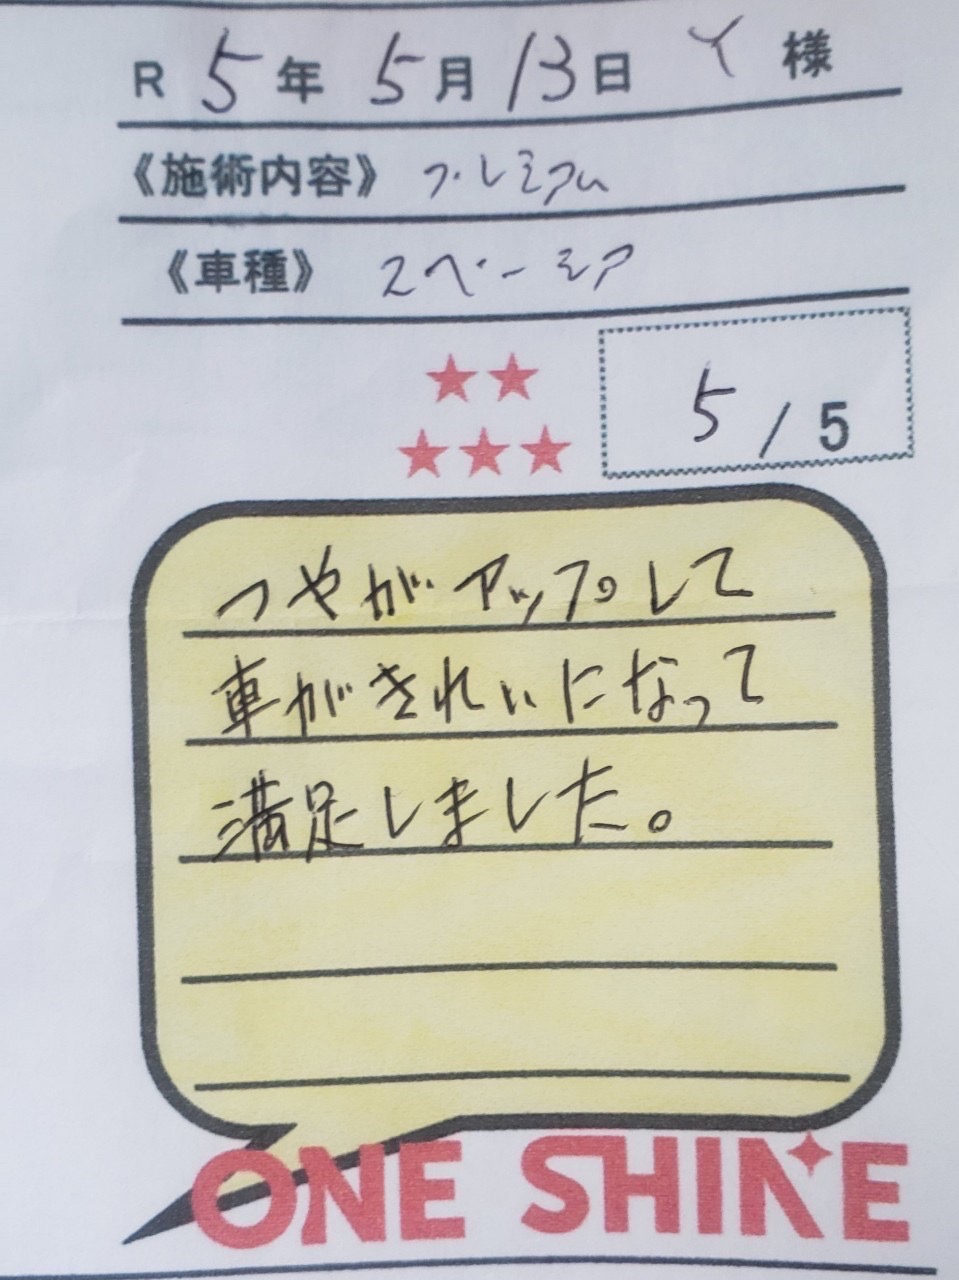 R 5年 5月 13日 Y 様
《施術内容》 プレミアム
《車種》 スペーシア
★★
★★★
5 / 5
つやがアップして
車がきれいになって
満足しました。
ONE SHINE